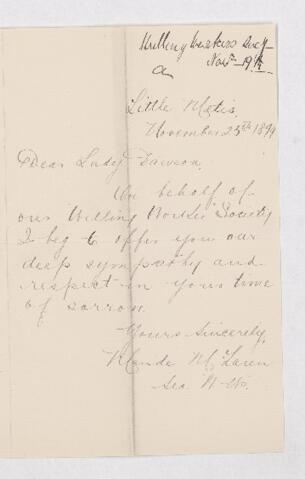 Willing Workers Socy
Nov 
a
Little Metis.
November 25th 1899
Dear Lady Dawson.
On behalf of
our Willing Workers Society
I beg to offer you our
deep sympathy and
respect in your time
of sorrow.
Yours Sincerely,
Maude McLaren
Sec W-W.